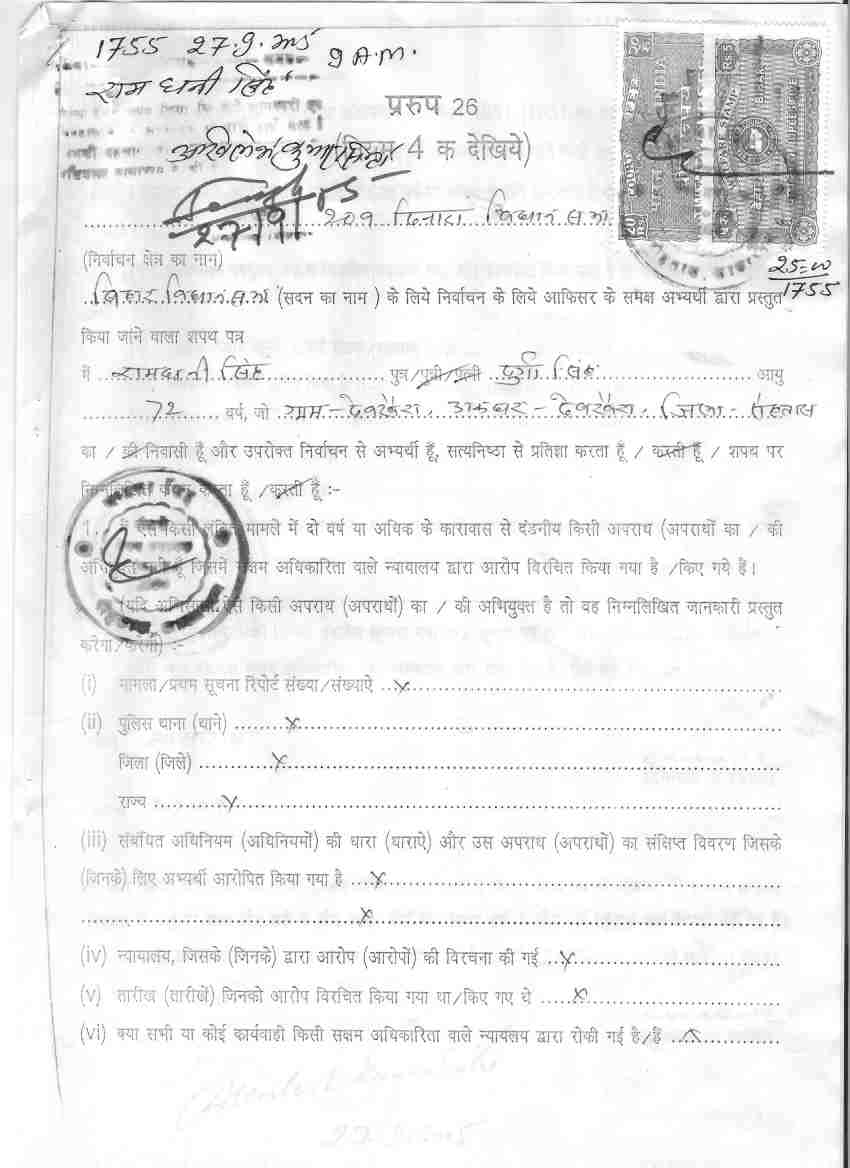 1755 27.9. 9 A.M.
राम धनी सिंह
प्ररुप 26
(नियम 4 क देखिये)
अखिलेश कुमार सिन्हा
209 दिनारा विधान स.भा
(निर्वाचन क्षेत्र का नाम)
25=00
1755
बिहार विधान स.भा (सदन का नाम ) के लिये निर्वाचन के लिये आफिसर के समक्ष अभ्यर्थी द्वारा प्रस्तुत
किया जाने वाला शपथ पत्र
में रामधनी सिंह पुत्र/पुत्री/पत्नी दुर्गा सिंह आयु
72 वर्ष, जो ग्राम- देवखैरा, डाकघर- देवखैरा, जिला- रोहतास
का / की निवासी हूँ और उपरोक्त निर्वाचन से अभ्यर्थी हूँ, सत्यनिष्ठा से प्रतिज्ञा करता हूँ / करती हूँ / शपथ पर
निम्नलिखित करता हूँ /करती हूँ :-
1. मैं ऐसे किसी लंबित मामले में दो वर्ष या अधिक के कारावास से दंडनीय किसी अपराध (अपराधों का / की
जिसमें सक्षम अधिकारिता वाले न्यायालय द्वारा आरोप विरचित किया गया है /किए गये हैं।
(यदि अभिसाक्षी ऐसे किसी अपराध (अपराधों) का / की अभियुक्त है तो वह निम्नलिखित जानकारी प्रस्तुत
करेगा/करेगी) :-
(i) मामला/प्रथम सूचना रिपोर्ट संख्या/संख्याऐ ..x
(ii) पुलिस थाना (थाने) x
जिला (जिले) x
राज्य : x
(iii) संबंधित अधिनियम (अधिनियमों) की धारा (धाराऐ) और उस अपराध (अपराधों) का संक्षिप्त विवरण जिसके
(जिनके) लिए अभ्यर्थी आरोपित किया गया है x
x
(iv) न्यायालय, जिसके (जिनके) द्वारा आरोप (आरोपों) की विरचना की गई x
(v) तारीख (तारीखें) जिनको आरोप विरचित किया गया था/किए गए थे x
(vi) क्या सभी या कोई कार्यवाही किसी सक्षम अधिकारिता वाले न्यायलय द्वारा रोकी गई है/हैं x